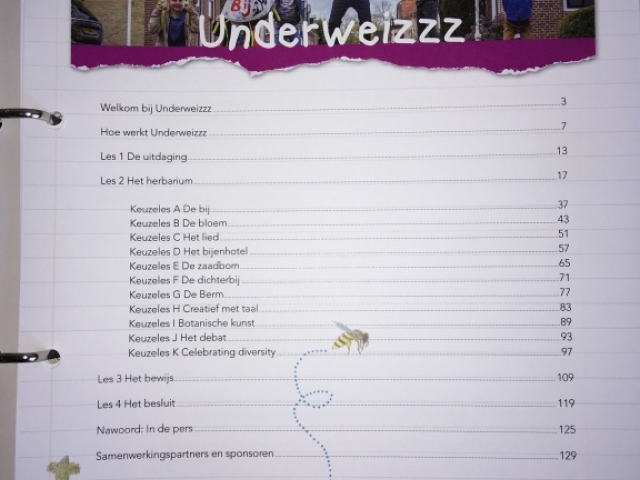 Bij
Underweizzz
Welkom bij Underweizzz 3
Hoe werkt Underweizzz 7
Les 1 De uitdaging 13
Les 2 Het herbarium 17
Keuzeles A De bij 37
Keuzeles B De bloem 43
Keuzeles C Het lied 51
Keuzeles D Het bijenhotel 57
Keuzeles E De zaadbom 65
Keuzeles F De dichterbij 71
Keuzeles G De Berm 77
Keuzeles H Creatief met taal 83
Keuzeles I Botanische kunst 89
Keuzeles J Het debat 93
Keuzeles K Celebrating diversity 97
Les 3 Het bewijs 109
Les 4 Het besluit 119
Nawoord: In de pers 125
Samenwerkingspartners en sponsoren 129